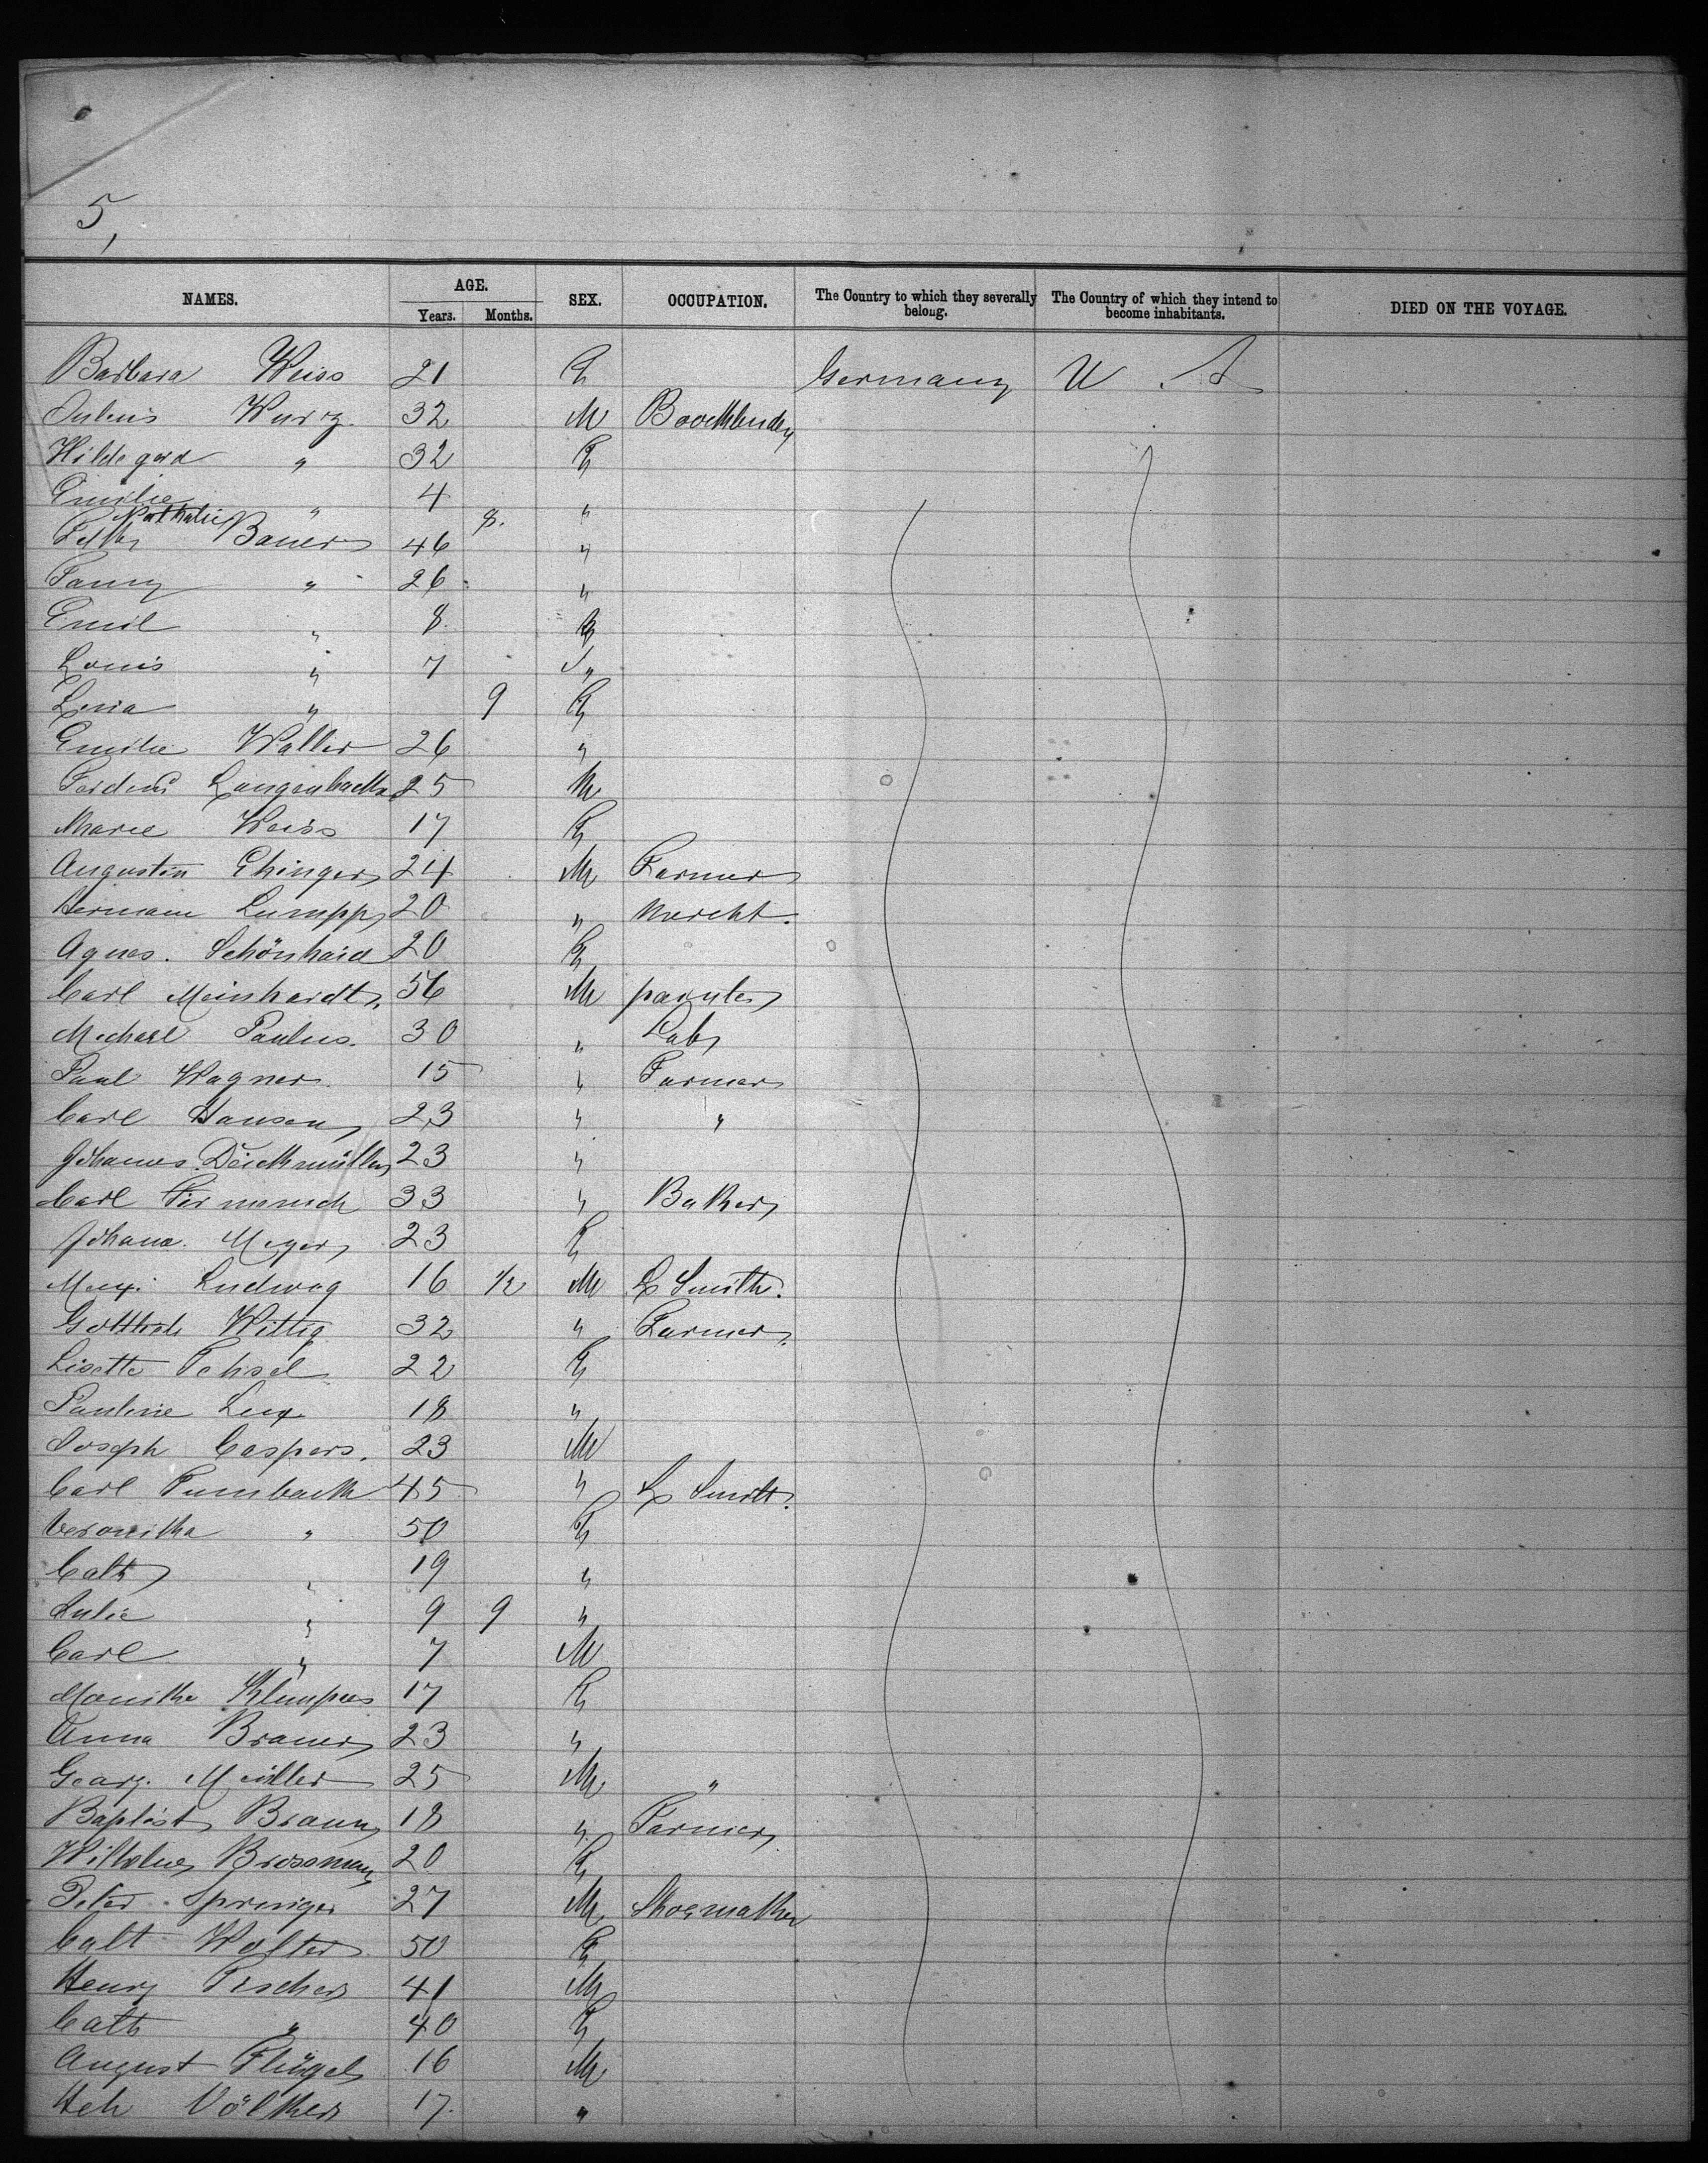 5,
NAMES. AGE. SEX. OCCUPATION. The Country to which they severally belong. The Country of which they intend to become inhabitants. DIED ON THE VOYAGE.
Years. Months.
Barbara Weiss 21 F Germany U. A
Julius Wurz. 32 M
Hildegard " 32 F
Emilie " 4 "
Nathalie 8.
Bauer 46 "
Fanny " 26 "
Emil " 8
Louis " 7 "
Lina " 9 F
Emilie Waller 26 "
Ferdind Langenbach 25 M
Marie Weiss 17 F
Augustin Ehinger 24 M Farmer
Hermann Lumpp 20 " Mercht.
Agnes. Schönhard 20 F
Carl Meinhardt 56 M
Michael Paulus. 30 " Lab
Paul Wagner 15 " Farmer
Carl Hansen 23 " "
Johannes Deickmüller 23 "
Carl 33 " Baker
Johana Meyer 23 F
Max. Ludwag 16 1/2 M L Smith.
Gottlieb Wittig 32 " Farmer
Lisette 22 F
Pauline Lux 18 "
Joseph Caspers. 23 M
Carl Tumback 45 " L Smith.
Veronika " 50 F
Cath " 19 "
Julie " 9 9 "
Carl " 7 M
Monika 17 F
Anna Brauer 23 "
Georg. Müller 25 M "
Baptist Braun 18 " Farmer
Brossman 20 F
Peter Springer 27 M Shoemaker
Cath Wolter 50 F
Henry Fischer 41 M
Cath " 40 F
August Flügel 16 M
Hch Völker 17. "